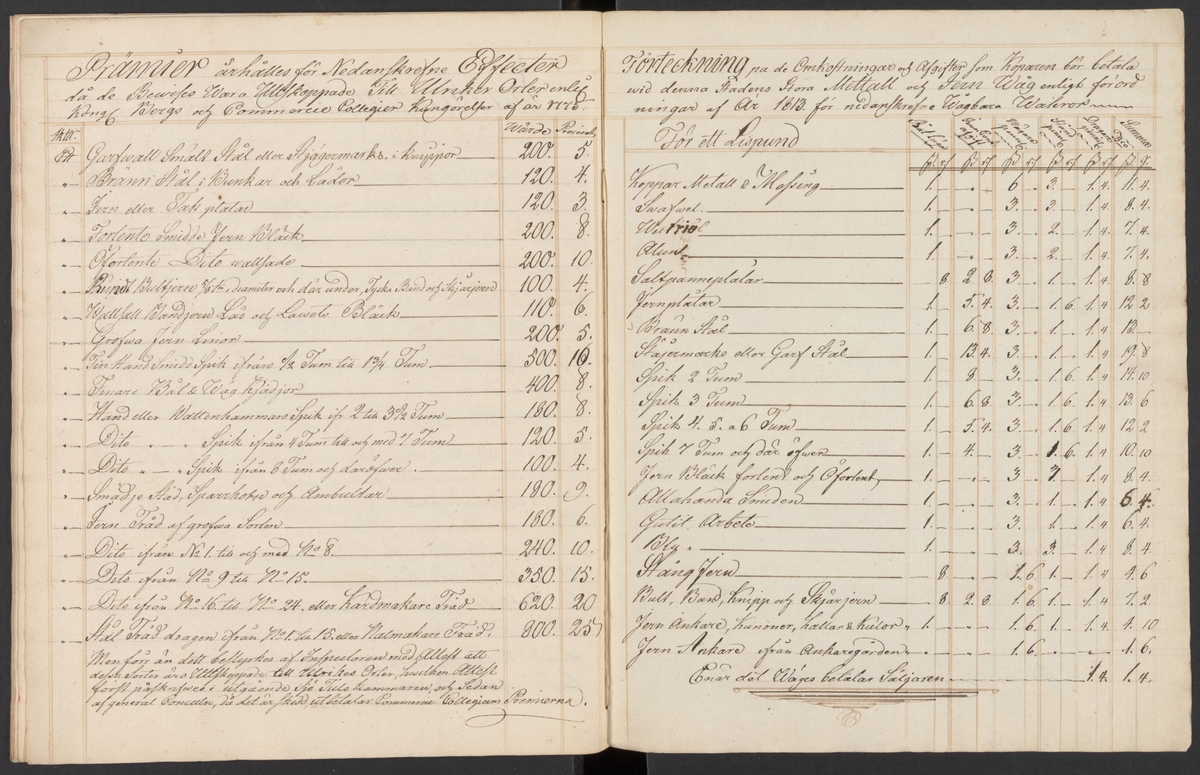 Prämier ärhålles för Nedanskrefne Effecter
då de Bewises Wara Utskeppade Till Utrikes Orter enligt
Kongl Bergs och Commercie Collegier Kungörelser af år 1778
Wärde Premier
Garfwall Smält Stål eller Stajermarks i Knippor 200. 5.
" Bränn Stål i Bunkar och Lådor 120. 4.
" Jern eller Tak platar 120. 3
" Förtente Smidde Jern Bläck 200. 8.
" Oförtente Dito wallsade 200. 10.
" Rundt Bultjern diameter och där under, Tyska Band och Skjärjern 100. 4.
" Wallsatt Bandjern Lås och Lawets Bläck 110. 6.
" Grofwa Jern Linor 200. 5.
" Fin Hand Smidd Spik ifrån 1/2 Tum till 1 3/4 Tum 500. 16.
" Finare Bål & Wäg Kjädjor 400. 8.
" Hand eller Wattenhammars Spik ifr 2 till 3 1/2 Tum 180. 8.
" Dito " " Spik ifrån 4 Tum till och med 7 Tum 120. 5.
" Dito " " Spik ifrån 6 Tum och däröfwer. 100. 4.
" Smidje Städ, Sparrhorn och Ambultar 180. 9.
" Jern Tråd af grofwa Sorten 180. 6.
" Dito ifrån No 1. till och med No 8. 240. 10.
" Dito ifrån No 9 till No 15. 350. 15.
" Dito ifrån No 16. till No 24. eller Kardmakare Tråd 620. 20
" Stål Tråd dragen ifrån No 1. till 15. eller Nålmakare Tråd. 800. 25
Men förr än dett bestyrkes af Inspectoren med Attest att
desse Sorter äro Utskeppade till Utrikes Orter, hwilken Attest
först påskrefwes i utgående Sjö Tuls kammaren, och Sedan
af general Consuln, då det är skedt utbetalar Commerce Collegium Premierna.
Förteckning på de Omkostningar och Afgifter som Köparen bör betala
wid denna Stadens Stora Mettall och Jern Wåg enligt förord
ningar af År 1813 för nedanskrefne Wågbara Waharor
För ett Lispund
Summa
Koppar Metall & Messing 1. 6. 3. 1. 4. 11. 4.
Swafwel 1. 3. 3. 1. 4. 8. 4.
Wittriol 1. 3. 2. 1. 4. 7. 4.
Alunt 1. 3. 2. 1. 4 7. 4.
Saltpanneplåtar 8 2 8 3 1. 1. 4. 8. 8
Jernplåtar 1. 5. 4. 3. 1. 6. 1. 4 12 2
Bränn Stål 1. 6. 8. 3. 1. 1. 4 13.
Stajermarks eller Garf Stål 1. 13. 4. 3. 1. 1. 4 19. 8
Spik 2 Tum 1. 8. 3. 1. 6. 1. 4 14. 10
Spik 3 Tum 1. 6. 8 3 1. 6 1. 4 13. 6
Spik 4. 5. a 6 Tum 1. 5. 4 3. 1. 6 1. 4 12. 2
Spik 7 Tum och där öfwer 1. 4. 3 1. 6. 1. 4 10. 10
Jern Bläck förtent och Oförtent, 1. 3 3. 1. 4 8. 4.
Allahanda Smiden 1. 3. 1. 1. 4 6 4.
Gutit Arbete 1. 3. 1. 1. 4 6. 4.
Bly " 1. 3. 3. 1. 4 8. 4.
Stång Jern 8. 1. 6. 1. 1. 4 4. 6
Bult, Band, Knipp och Skjärjern 8. 2. 8. 1. 6. 1. 1. 4 7. 2
Jern Ankare, Kanoner, Hällar & Kulor 1. 1. 6. 1. 1. 4. 4. 10
Jern Ankare ifrån Ankaregården 1. 6 1. 6.
Enär det Wäges betalar Säljaren 1. 4. 1. 4.